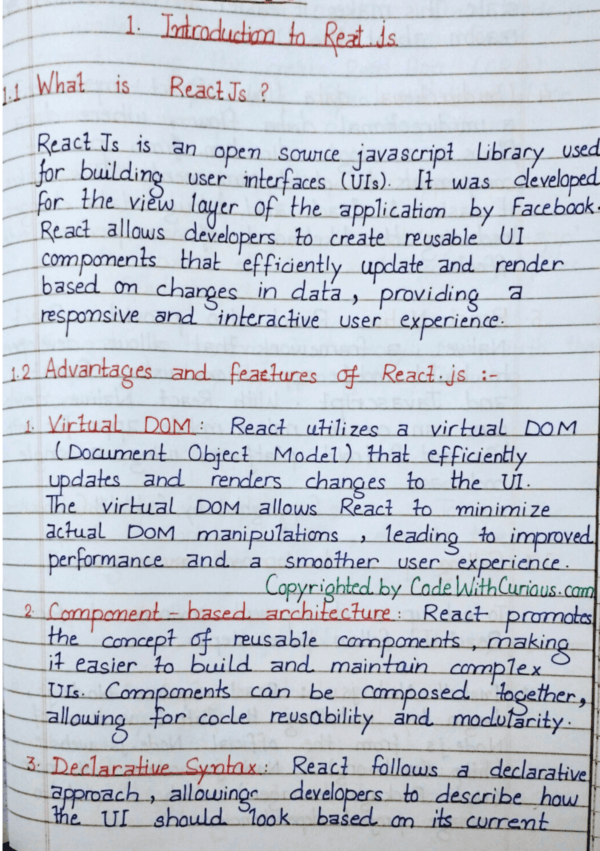 1. Introduction to Reat.js
1.1 What is ReactJs ?
React Js is an open source javascript Library used
for building user interfaces (UIs). It was developed
for the view layer of the application by Facebook.
React allows developers to create reusable UI
components that efficiently update and render
based on changes in data, providing a
responsive and interactive user experience.
1.2 Advantages and features of React.js :-
1. Virtual DOM : React utilizes a virtual DOM
(Document Object Model) that efficiently
updates and renders changes to the UI.
The virtual DOM allows React to minimize
actual DOM manipulations , leading to improved
performance and a smoother user experience.
Copyrighted by CodeWithCurious.com
2. Component-based architecture : React promotes
the concept of reusable components, making
it easier to build and maintain complex
UIs. Components can be composed together,
allowing for code reusability and modularity.
3. Declarative Syntax : React follows a declarative
approach, allowing developers to describe how
the UI should look based on its current